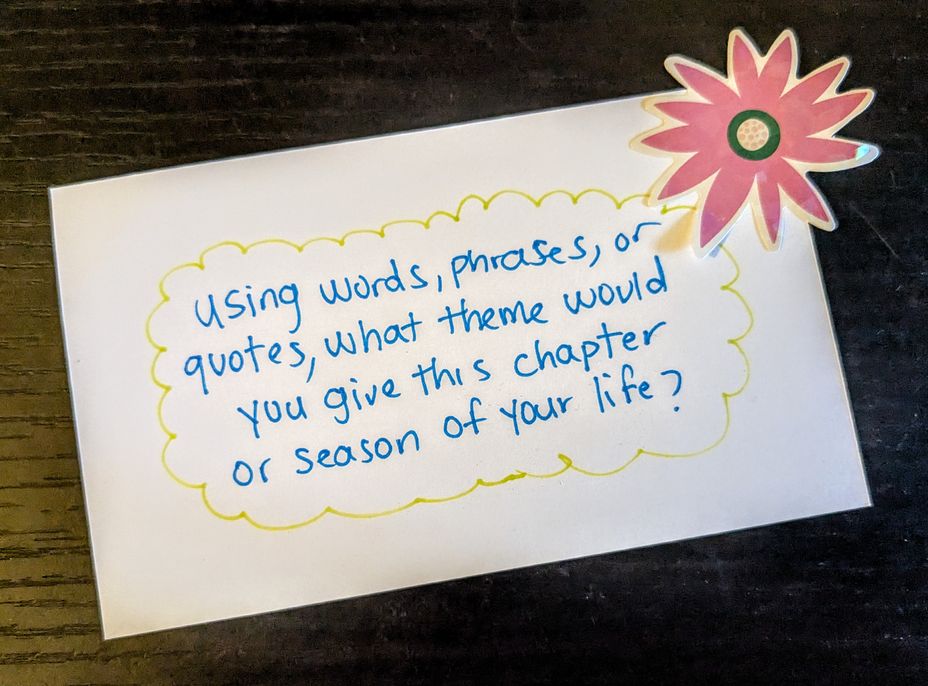 using words, phrases, or
quotes, what theme would
you give this chapter
or season of your life?